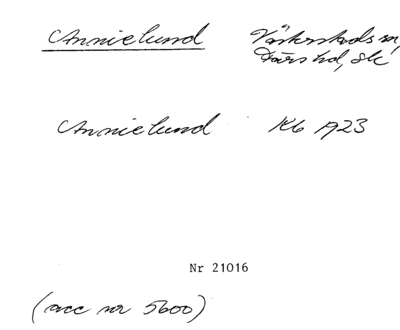 Annielund Värkerstads sn,
Färs hd, Sk
Annielund Kb 1923
Nr 21016
(acc nr 5600)